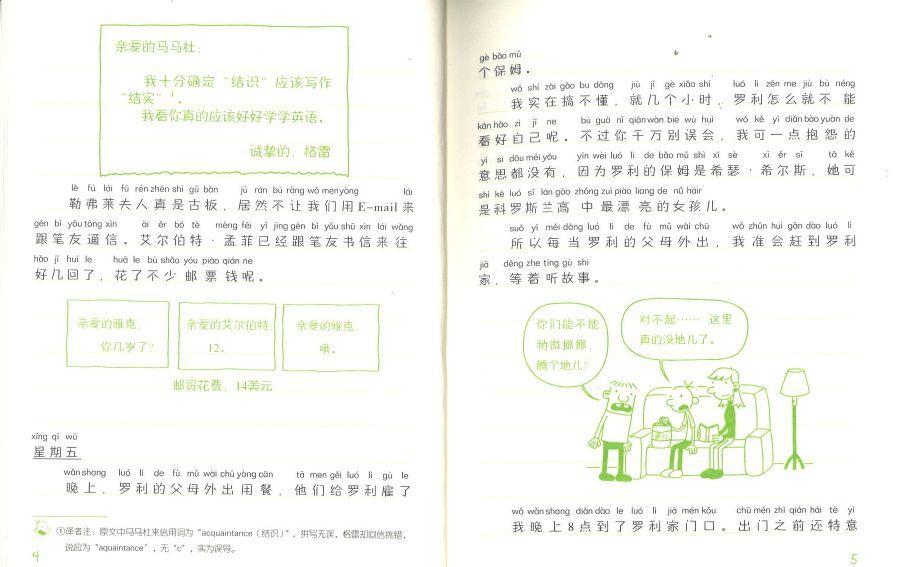 亲爱的马马杜：
我十分确定“结识”应该写作
“结实”①。
我看你真的应该好好学学英语。
诚挚的，格雷
lè fú lái fū rén zhēn shì gǔ bǎn jū rán bù ràng wǒ men yòng lái
勒弗莱夫人真是古板，居然不让我们用E-mail来
gēn bǐ yǒu tōng xìn ài ěr bó tè mèng fēi yǐ jīng gēn bǐ yǒu shū xìn lái wǎng
跟笔友通信。艾尔伯特·孟菲已经跟笔友书信来往
hǎo jǐ huí le huā le bù shǎo yóu piào qián ne
好几回了，花了不少邮票钱呢。
亲爱的雅克，
你几岁了？
亲爱的艾尔伯特，
12。
亲爱的雅克，
哦。
邮资花费，14美元
xīng qī wǔ
星期五
wǎn shang luó lì de fù mǔ wài chū yòng cān tā men gěi luó lì gù le
晚上，罗利的父母外出用餐，他们给罗利雇了
①译者注：原文中马马杜来信用词为“acquaintance（结识）”，拼写无误，格雷却回信搞错，
说应为“aquaintance”，无“c”，实为误导。
4
gè bǎo mǔ
个保姆。
wǒ shí zài gǎo bu dǒng jiù jǐ gè xiǎo shí luó lì zěn me jiù bù néng
我实在搞不懂，就几个小时，罗利怎么就不能
kān hǎo zì jǐ ne bù guò nǐ qiān wàn bié wù huì wǒ kě yì diǎn bào yuàn de
看好自己呢。不过你千万别误会，我可一点抱怨的
yì si dōu méi yǒu yīn wèi luó lì de bǎo mǔ shì xī sè xī ěr sī tā kě
意思都没有，因为罗利的保姆是希瑟·希尔斯，她可
shì kē luó sī lán gāo zhōng zuì piào liang de nǚ háir
是科罗斯兰高中最漂亮的女孩儿。
suǒ yǐ měi dāng luó lì de fù mǔ wài chū wǒ zhǔn huì gǎn dào luó lì
所以每当罗利的父母外出，我准会赶到罗利
jiā děng zhe tīng gù shi
家，等着听故事。
你们能不能
稍微挪挪，
腾个地儿？
对不起……这里
真的没地儿了。
wǒ wǎn shang diǎn dào le luó lì jiā mén kǒu chū mén zhī qián hái tè yì
我晚上8点到了罗利家门口。出门之前还特意
5